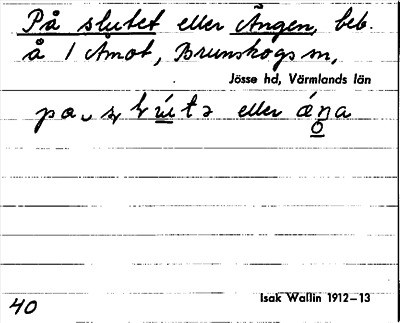 På slutet eller Ängen, beb.
å 1 Åmot, Brunskogs sn,
Jösse hd, Värmlands län
eller
Isak Wallin 1912–13
40